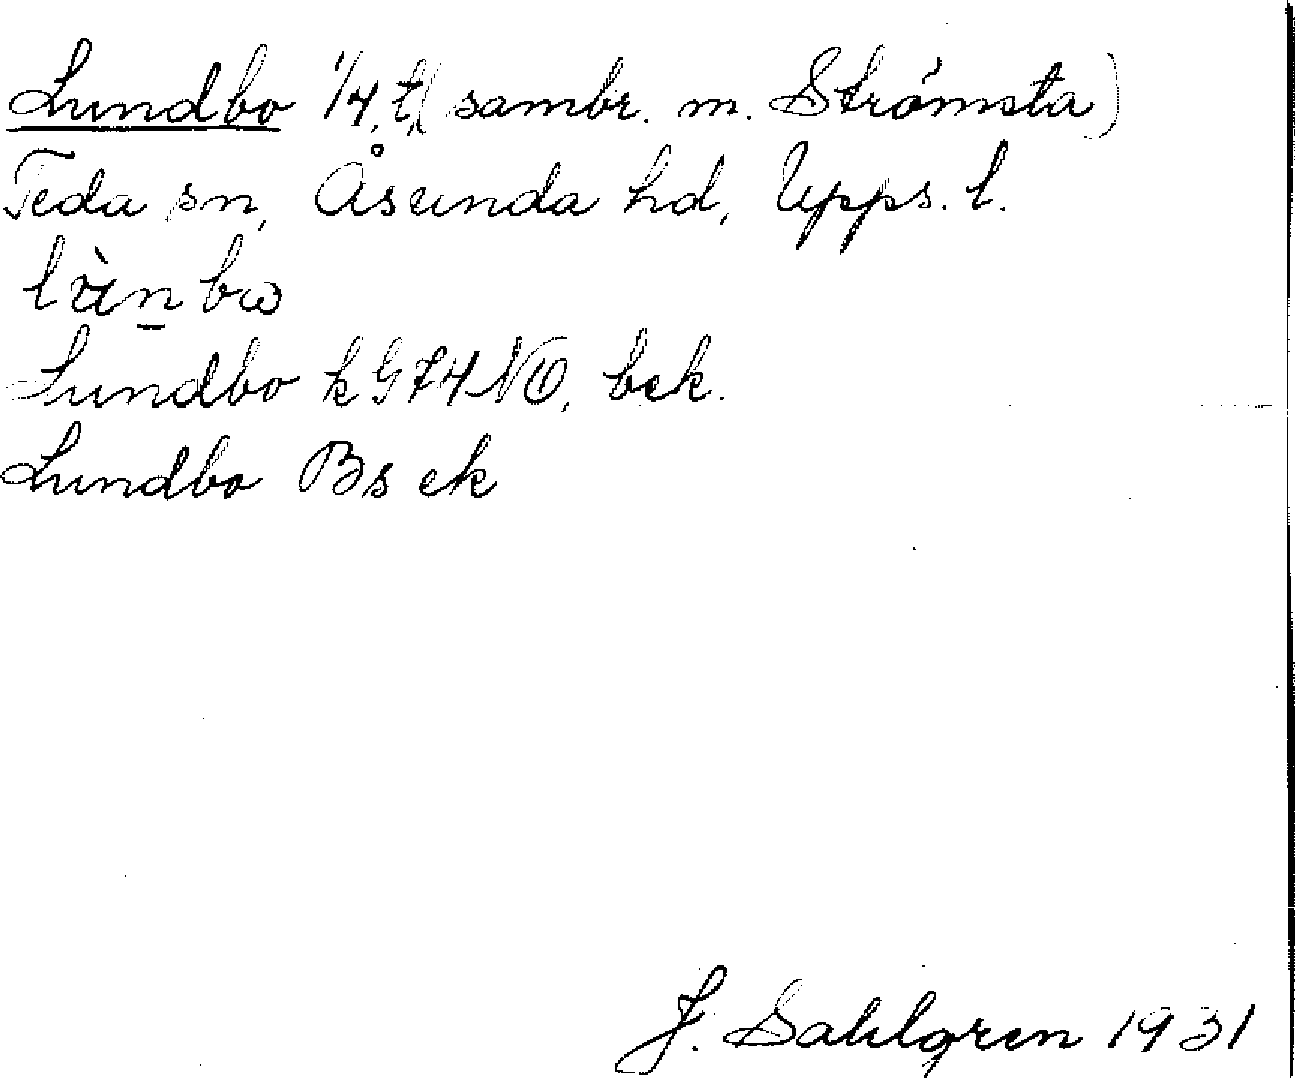 Lundbo 1/4 t, (sambr. m. Strömsta)
Teda sn, Åsunda hd, Upps. l.
Lundbo k G74 NO, bek.
Lundbo Bs ek
J. Sahlgren 1931